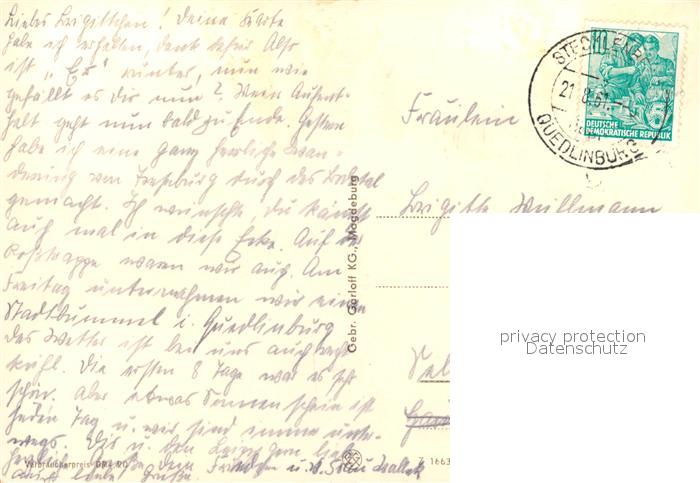 Liebes Brigittchen! Deine Karte
habe ich erhalten, dank dafür. Also
ist " " munter, nun wie
gefällt es Dir nun? Mein Aufent-
halt geht nun bald zu Ende. Gestern
habe ich eine ganz herrliche Wan-
derung von Treseburg durch das Bodetal
gemacht. Ich wünschte, du kämst
auch mal in diese Ecke. Auf der
Roßtrappe waren wir auch. Am
Freitag unternahmen wir einen
Stadtbummel i. Quedlinburg
das Wetter ist bei uns auch recht
kühl. Die ersten 8 Tage war es sehr
schön. Aber etwas Sonnenschein ist
jeden Tag u. wir sind immer unter-
wegs. Dir u. den
herzliche Grüße
Gebr. Garloff KG., Magdeburg
Verbraucherpreis
1663
STECKLENBERG
21.8.61
QUEDLINBURG
DEUTSCHE
DEMOKRATISCHE REPUBLIK
Fräulein
Brigitte Willmann
privacy protection
Datenschutz